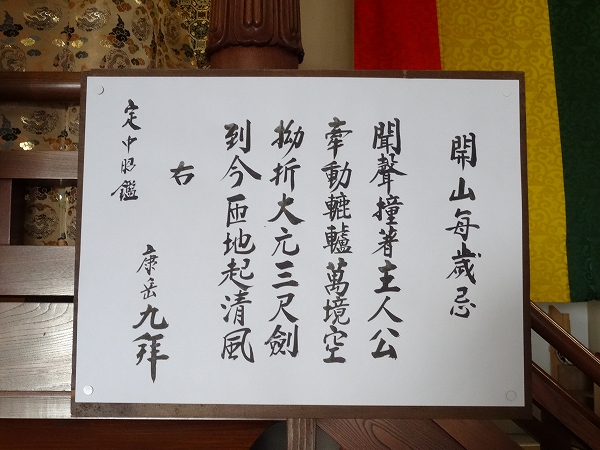 開山毎歳忌
聞聲撞著主人公
牽動轆轤萬境空
拗折大元三尺劍
到今匝地起清風
右
定中昭鑑
康岳九拜